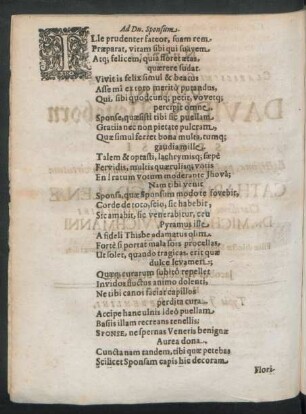 Ad Dn. Sponsum.
ILle prudenter fateor, suam rem
Præparat, vitam sibi qui suavem
Atq; felicem, quis floret ætas,
quærere sudat.
Vivit is felix simul & beatus
Asse mâ ex toto meritò putandus,
Qui, sibi quodcunq; petit, voveтq;
percipit omne.
Sponse, quæsisti tibi sic puellam
Gratiis nec non pietate pulcram,
Quæ simul ferret bona multa, tumq;
gaudia mille.
Talem & optasti, lachrymisq; sæpè
Fervidis, multis querulisq; votis
En! ratum votum moderante Jhová;
Nam tibi venit
Sponsa, quæ sponsum modo te fovebit,
Corde de toto, scio, sic habebit,
Sic amabit, sic venerabitur, ceu
Pyramus ille
A fideli Thisbe adamatus olim.
Fortè si portat mala sors procellas,
Ut solet, quando tragicas, erit quæ
dulce levamen;
Quæq; curarum subitò repellet
Invidos fluctus animo dolenti,
Ne tibi canos faciat capillos
perdita cura.
Accipe hanc ulnis ideò puellam
Basiis illam recreans tenellis:
SPONSE, ne spernas Veneris benignæ
Aurea dona.
Cuncta nam tandem, tibi quæ petebas
Scilicet Sponsam capis hic decoram.
Flori-